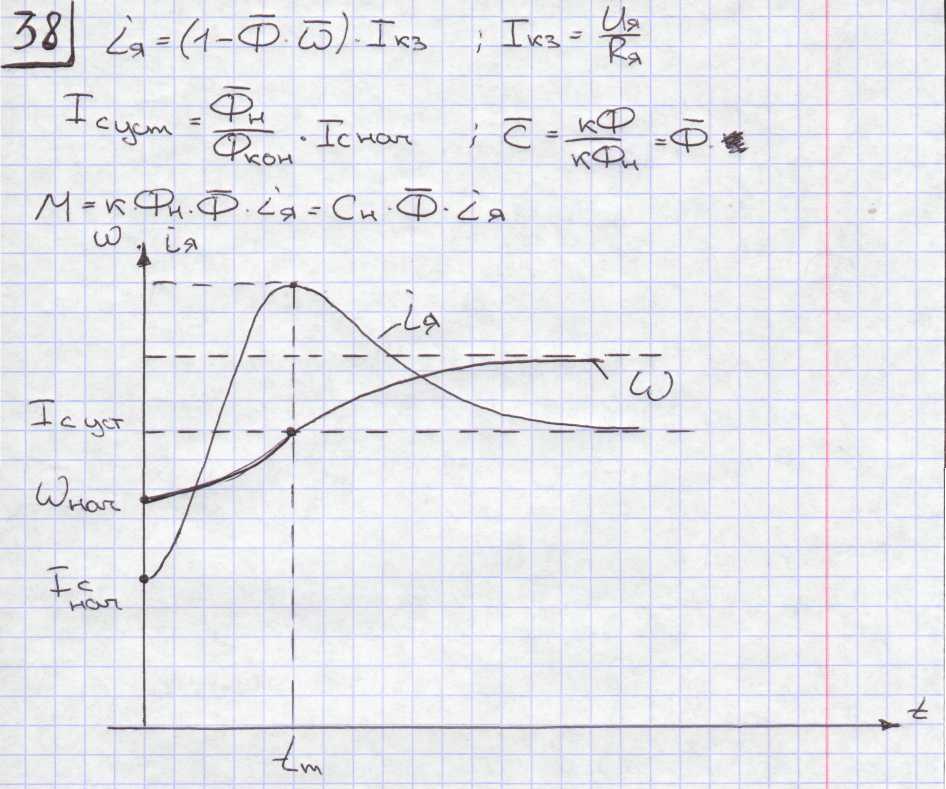 38 i_я = (1 - Φ̅ · ω̅) · I_кз ; I_кз = U_я / R_я
I_с уст = Φ̅_н / Φ_кон · I_с нач ; C̅ = кФ / кФ_н = Φ̅
M = к · Ф_н · Φ̅ · i_я = C_н · Φ̅ · i_я
ω, i_я
i_я
ω
I_с уст
ω_нач
I_с нач
t
t_m